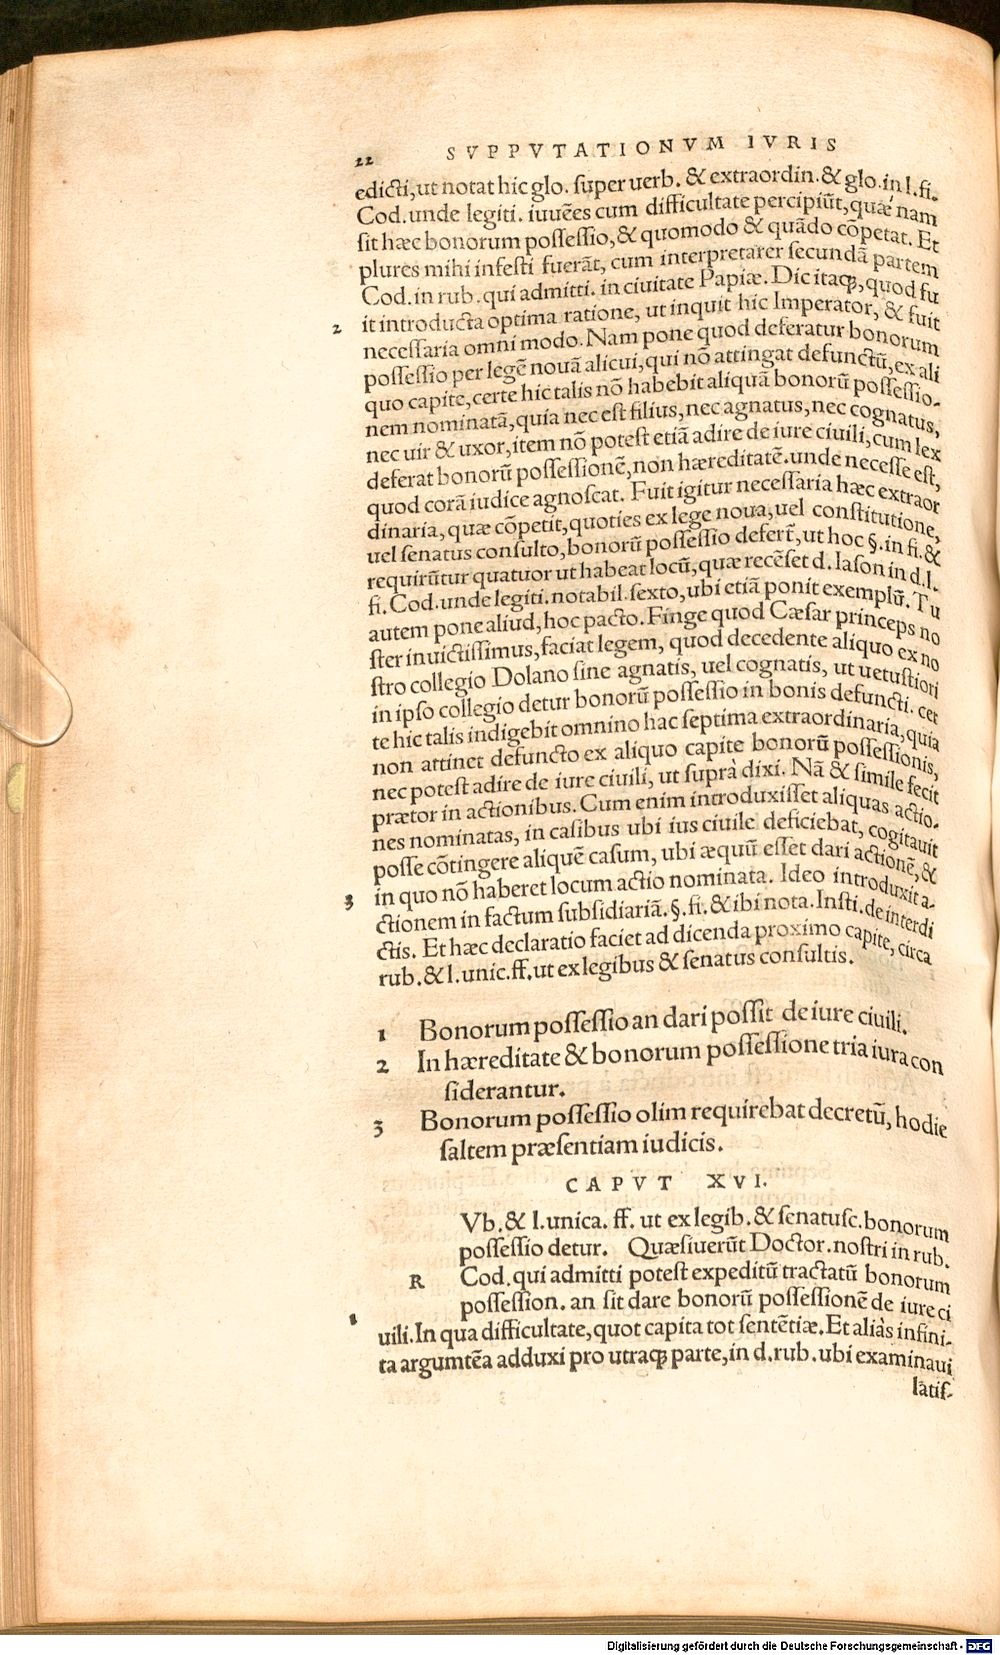 22 SVPPVTATIONVM IVRIS
edicti, ut notat hic glo. ſuper uerb. & extraordin. & glo. in l. fi.
Cod. unde legiti. iuuẽes cum difficultate percipiũt, quæ nam
ſit hæc bonorum poſſeſſio, & quomodo & quãdo cõpetat. Et
plures mihi infeſti fuerãt, cum interpretarer ſecundã partem
Cod. in rub. qui admitti. in ciuitate Papiæ. Dic itaq;, quod fu
2 it introducta optima ratione, ut inquit hic Imperator, & fuit
neceſſaria omni modo. Nam pone quod deferatur bonorum
poſſeſſio per legẽ nouã alicui, qui nõ attingat defunctũ, ex ali
quo capite, certe hic talis nõ habebit aliquã bonorũ poſſeſſio-
nem nominatã, quia nec eſt filius, nec agnatus, nec cognatus,
nec uir & uxor, item nõ poteſt etiã adire de iure ciuili, cum lex
deferat bonorũ poſſeſſionẽ, non hæreditatẽ. unde neceſſe eſt,
quod corã iudice agnoſcat. Fuit igitur neceſſaria hæc extraor
dinaria, quæ cõpetit, quoties ex lege noua, uel conſtitutione,
uel ſenatus conſulto, bonorũ poſſeſſio defert̃, ut hoc §. in fi. &
requirũtur quatuor ut habeat locũ, quæ recẽſet d. Iaſon in d. l.
fi. Cod. unde legiti. notabil. ſexto, ubi etiã ponit exemplũ. Tu
autem pone aliud, hoc pacto. Finge quod Cæſar princeps no
ſter inuictiſſimus, faciat legem, quod decedente aliquo ex no
ſtro collegio Dolano ſine agnatis, uel cognatis, ut uetuſtiori
in ipſo collegio detur bonorũ poſſeſſio in bonis defuncti. cer
te hic talis indigebit omnino hac ſeptima extraordinaria, quia
non attinet defuncto ex aliquo capite bonorũ poſſeſſionis,
nec poteſt adire de iure ciuili, ut ſuprà dixi. Nã & ſimile fecit
prætor in actionibus. Cum enim introduxiſſet aliquas actio-
nes nominatas, in caſibus ubi ius ciuile deficiebat, cogitauit
poſſe cõtingere aliquẽ caſum, ubi æquũ eſſet dari actionẽ, &
3 in quo nõ haberet locum actio nominata. Ideo introduxit a-
ctionem in factum ſubſidiariã. §. fi. & ibi nota. Inſti. de interdi
ctis. Et hæc declaratio faciet ad dicenda proximo capite, circa
rub. & l. unic. ff. ut ex legibus & ſenatus conſultis.
1 Bonorum poſſeſſio an dari poſſit de iure ciuili.
2 In hæreditate & bonorum poſſeſſione tria iura con
ſiderantur.
3 Bonorum poſſeſſio olim requirebat decretũ, hodie
ſaltem præſentiam iudicis.
CAPVT XVI.
R Vb. & l. unica. ff. ut ex legib. & ſenatuſc. bonorum
poſſeſſio detur. Quæſiuerũt Doctor. noſtri in rub.
Cod. qui admitti poteſt expeditũ tractatũ bonorum
poſſeſſion. an ſit dare bonorũ poſſeſſionẽ de iure ci
1 uili. In qua difficultate, quot capita tot ſentẽtiæ. Et aliàs infini-
ta argumtẽa adduxi pro utraq; parte, in d. rub. ubi examinaui
latiſ-
Digitalisierung gefördert durch die Deutsche Forschungsgemeinschaft - DFG